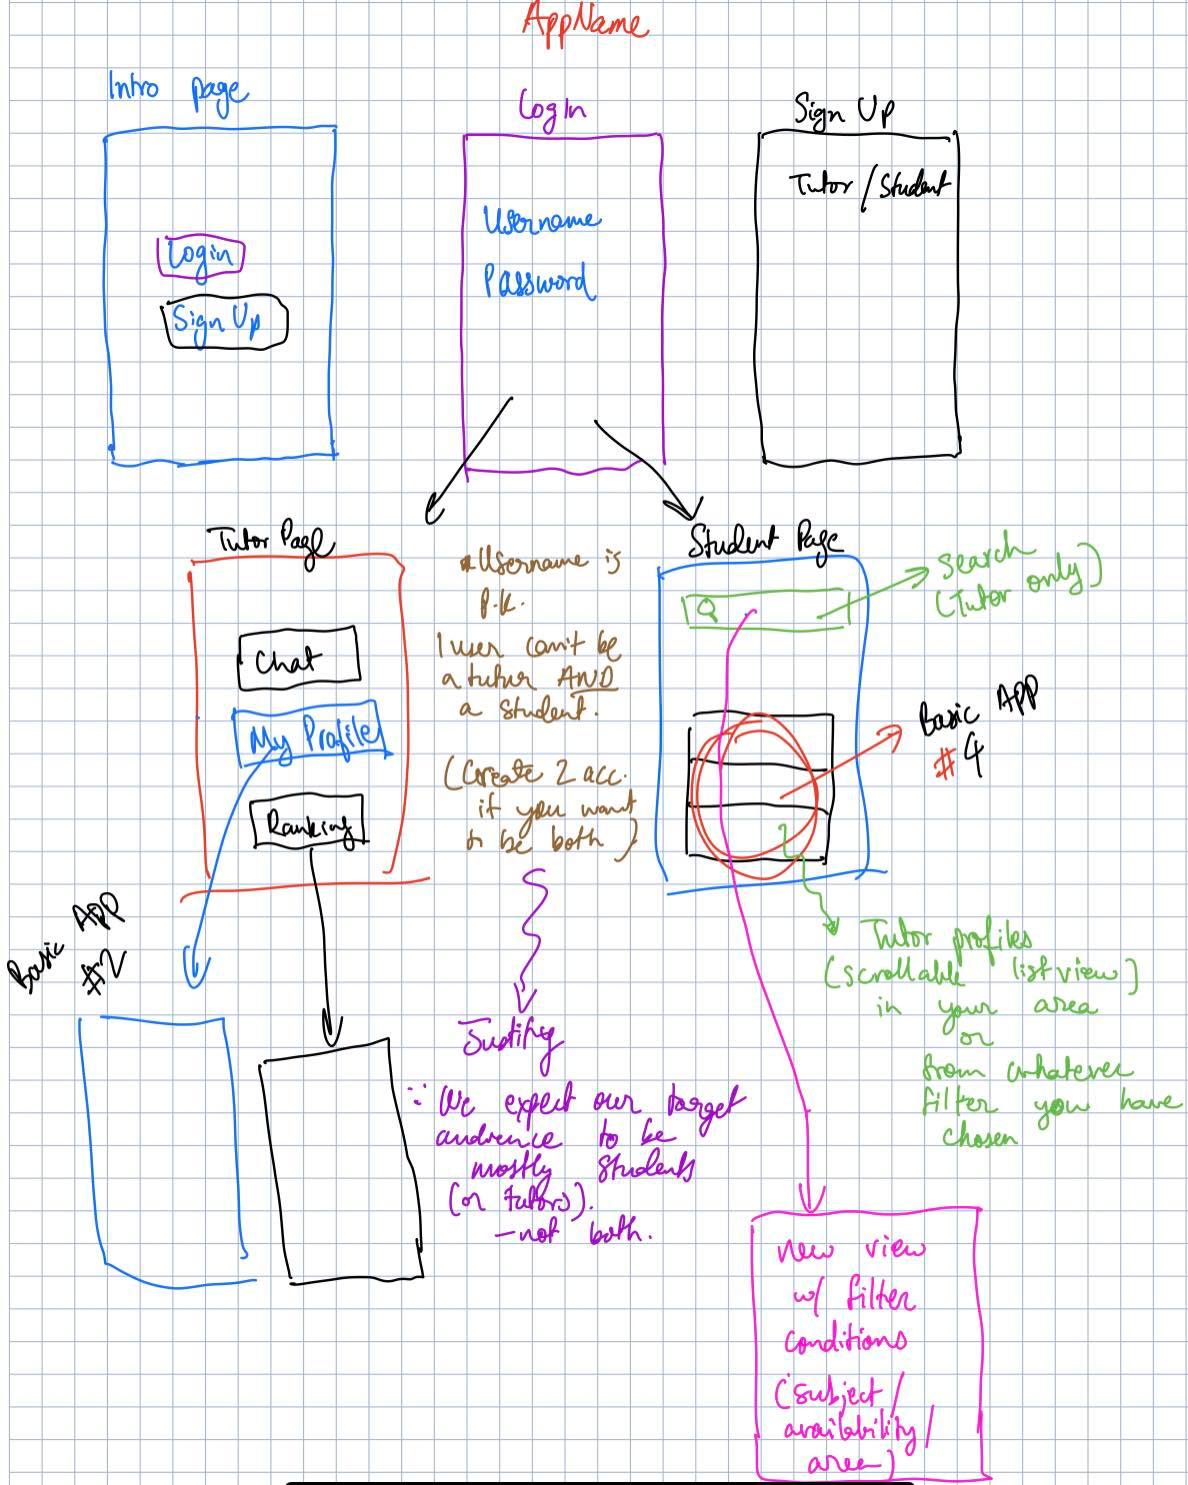 AppName
Intro page
Login
Sign Up
LogIn
Username
Password
Sign Up
Tutor / Student
Tutor Page
Chat
My Profile
Ranking
Basic APP
#2
*Username is
P.K.
1 user can't be
a tutor AND
a student.
(Create 2 acc.
if you want
to be both)
Justify
∵ We expect our target
audience to be
mostly students
(or tutors).
- not both.
Student Page
Search
(Tutor only)
Basic APP
#4
Tutor profiles
(scrollable listview)
in your area
or
from whatever
filter you have
chosen
new view
w/ filter
conditions
(subject/
availability/
area)